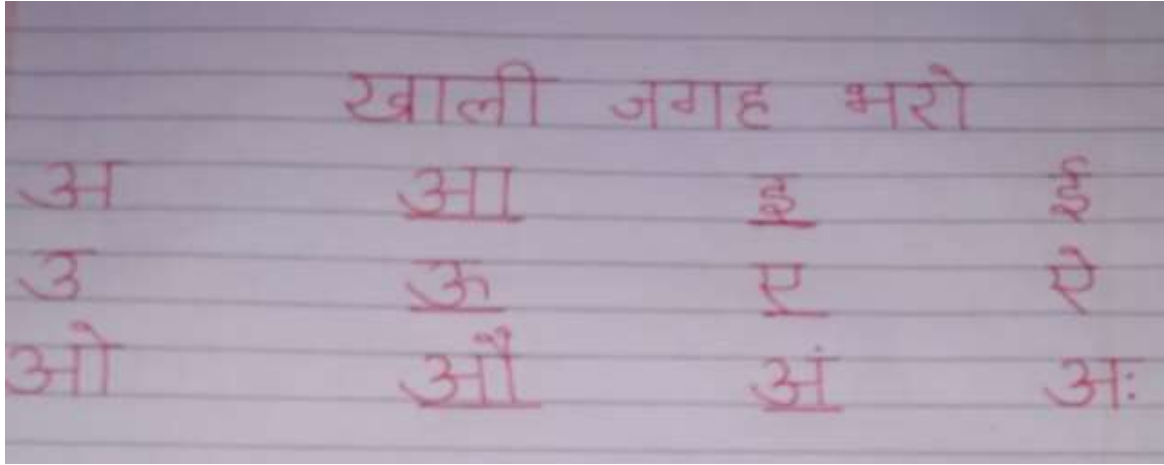 खाली जगह भरो
अ आ इ ई
उ ऊ ए ऐ
ओ औ अं अः